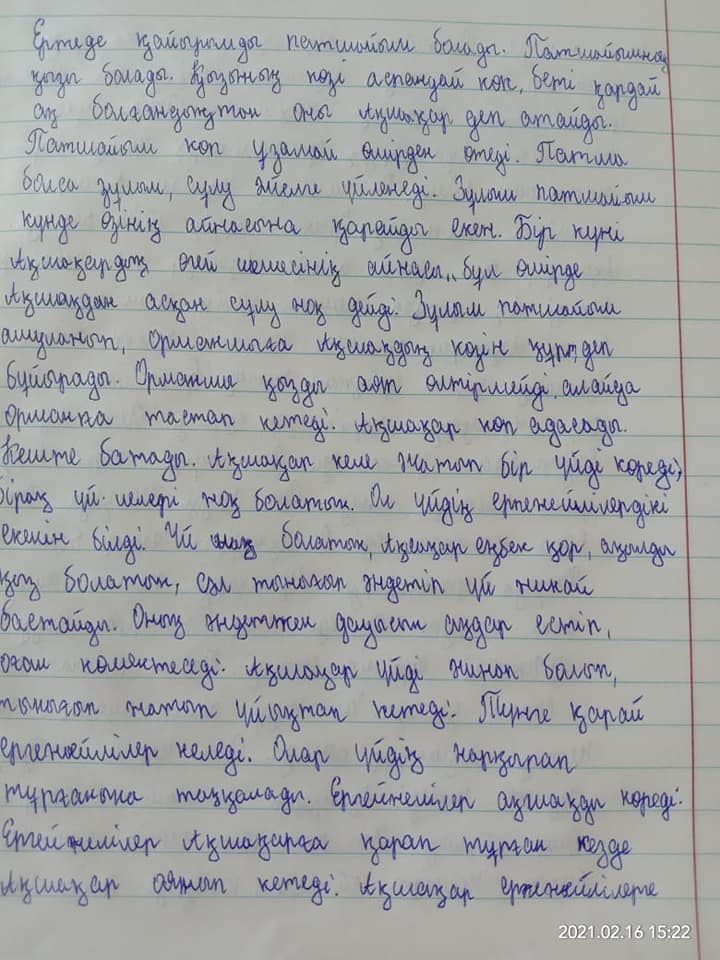 Ертеде қайырымды патшайым болады. Патшайымның
қызы болады. Қызының көзі аспандай көк, беті қардай
ақ болғандықтан оны Ақшақар деп атайды.
Патшайым көп ұзамай өмірден өтеді. Патша
болса зұлым, сұлу әйелге үйленеді. Зұлым патшайым
күнде өзінің айнасына қарайды екен. Бір күні
Ақшақардың өгей шешесінің айнасы,, бұл өмірде
Ақшақдан асқан сұлу жоқ дейді. Зұлым патшайым
ашуланып, орманшыға Ақшақдың көзін құрт деп
бұйырады. Орманшы қызды аяп өлтірмейді. алайда
орманға тастап кетеді. Ақшақар көп адасады.
Кешке батады. Ақшақар келе жатып бір үйді көреді,
бірақ үй иелері жоқ болатын. Ол үйдің ергенейлілердікі
екенін білді. Үй болатын, Ақшақар еңбек қор, ақылды
қыз болатын, сәл тынығып әндетіп үй жинай
бастайды. Оның әндеткен дауысын аңдар естіп,
оған көмектеседі. Ақшақар үйді жинап болып,
тынығып жатып ұйықтап кетеді. Түнге қарай
ергенейлілер келеді. Олар үйдің жарқырап
тұрғанына таңқалады. Ергейнелілер ақшақды көреді.
Ергейжелілер Ақшақарға қарап тұрған кезде
Ақшақар оянып кетеді. Ақшақар ергенейлілерге
2021.02.16 15:22